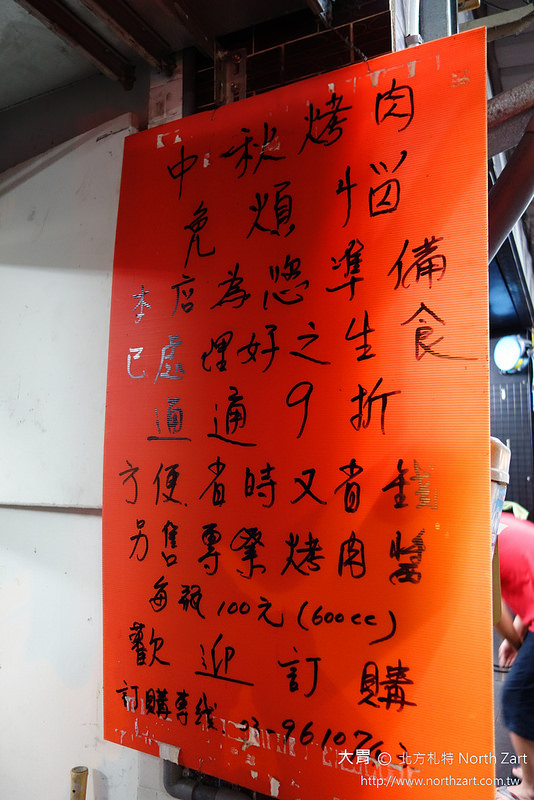 中秋烤肉
免煩惱
本店為您準備
已處理好之生食
通通9折
方便省時又省錢
另售專業烤肉醬
每瓶100元(600cc)
歡迎訂購
訂購專線
大胃 © 北方札特 North Zart
http://www.northzart.com.tw